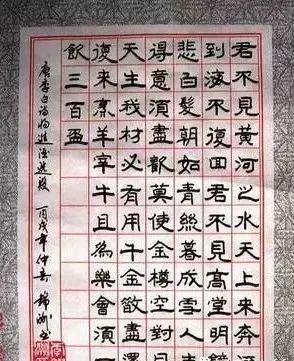 君不見黃河之水天上来奔
到海不復回君不見高堂明
悲白髮朝如青絲暮成雪人
得意須盡歡莫使金樽空對月
天生我材必有用千金散盡還
復来烹羊宰牛且為樂會須一
飲三百盃
唐李白詩將進酒選段 丙戌年仲春